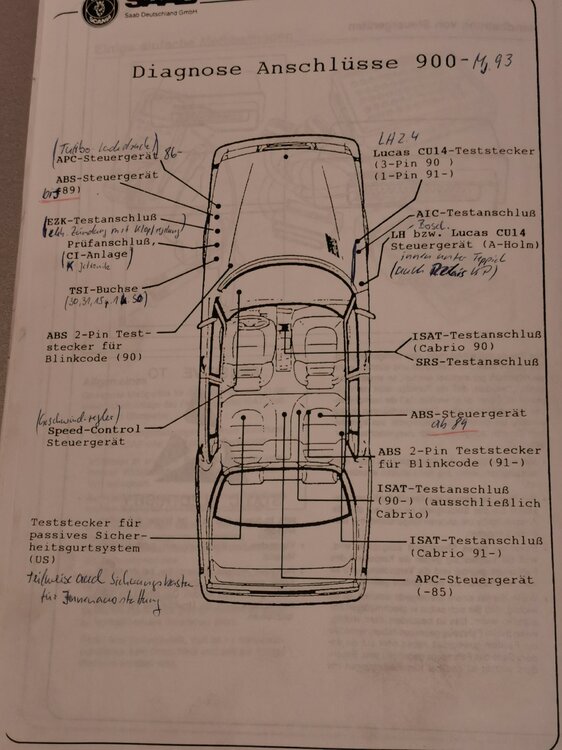 SAAB
SCANIA
Saab Deutschland GmbH
Diagnose Anschlüsse 900-Mj. 93
(Turbo Ladedruck)
APC-Steuergerät 86-
ABS-Steuergerät
bis 89)
EZK-Testanschluß
(elektr. Zündung mit Klopfregelung)
Prüfanschluß,
(CI-Anlage)
K Jetronic
TSI-Buchse
(30, 31, 15,
ABS 2-Pin Test-
stecker für
Blinkcode (90)
(Geschwind.regler)
Speed-Control
Steuergerät
Teststecker für
passives Sicher-
heitsgurtsystem
(US)
teilweise auch Sicherungskasten
für Innenausstattung
LH 2.4
Lucas CU14-Teststecker
(3-Pin 90 )
(1-Pin 91-)
AIC-Testanschluß
Bosch
LH bzw. Lucas CU14
Steuergerät (A-Holm)
innen unter Teppich
(auch Relais KP)
ISAT-Testanschluß
(Cabrio 90)
SRS-Testanschluß
ABS-Steuergerät
ab 89
ABS 2-Pin Teststecker
für Blinkcode (91-)
ISAT-Testanschluß
(90-) (ausschließlich
Cabrio)
ISAT-Testanschluß
(Cabrio 91-)
APC-Steuergerät
(-85)